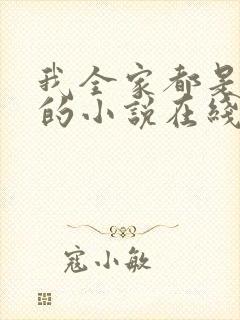 我全家都是
的小说在线
寇小敏